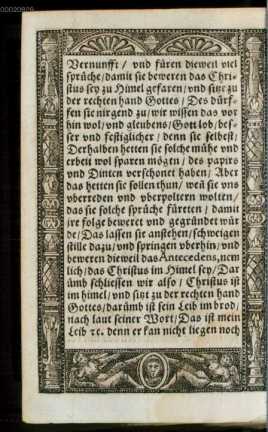 00020809
Vernunfft / vnd füren dieweil viel
sprüche / damit sie beweren das Chri-
stus sey zu Himel gefaren / vnd sitze zu
der rechten hand Gottes / Des dürf-
fen sie nirgend zu / wir wissen das vor
hin wol / vnd gleubens / Gott lob / bes-
ser vnd festiglicher / denn sie selbst /
Derhalben hetten sie solche mühe vnd
erbeit wol sparen mögen / des papirs
vnd Dinten verschonet haben / Aber
das hetten sie sollen thun / wen̄ sie vns
vberreden vnd vberpoltern wolten /
das sie solche sprüche füreten / damit
jre folge beweret vnd gegründet wür
de / Das lassen sie anstehen / schweigen
stille dazu / vnd springen vberhin / vnd
beweren dieweil das Antecedens, nem
lich / das Christus im Himel sey / Dar
ümb schliessen wir also / Christus ist
im himel / vnd sitzt zu der rechten hand
Gottes / darümb ist sein Leib im brod /
nach laut seiner Wort / Das ist mein
Leib ꝛc. denn er kan nicht liegen noch